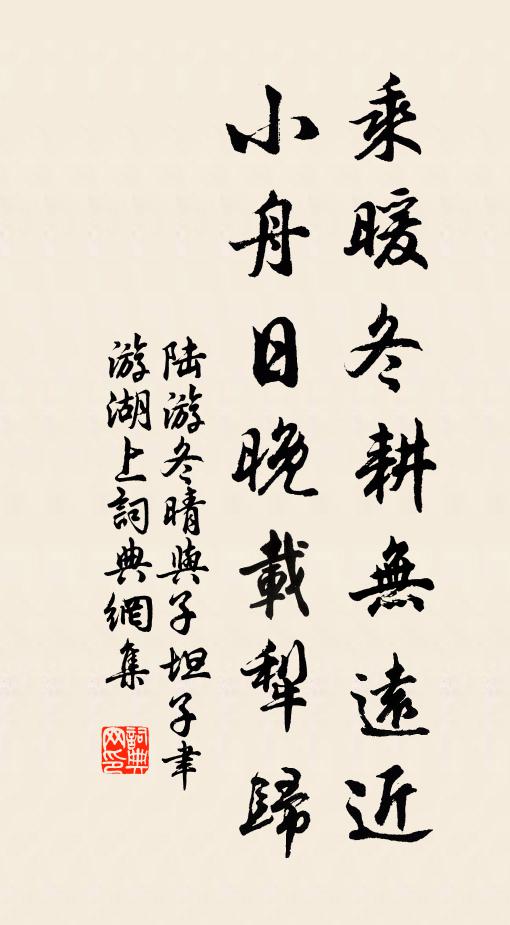 乘暖冬耕無遠近
小舟日晚載犁歸
陸游冬晴與子坦子聿
游湖上詞典網集
詞典
网印